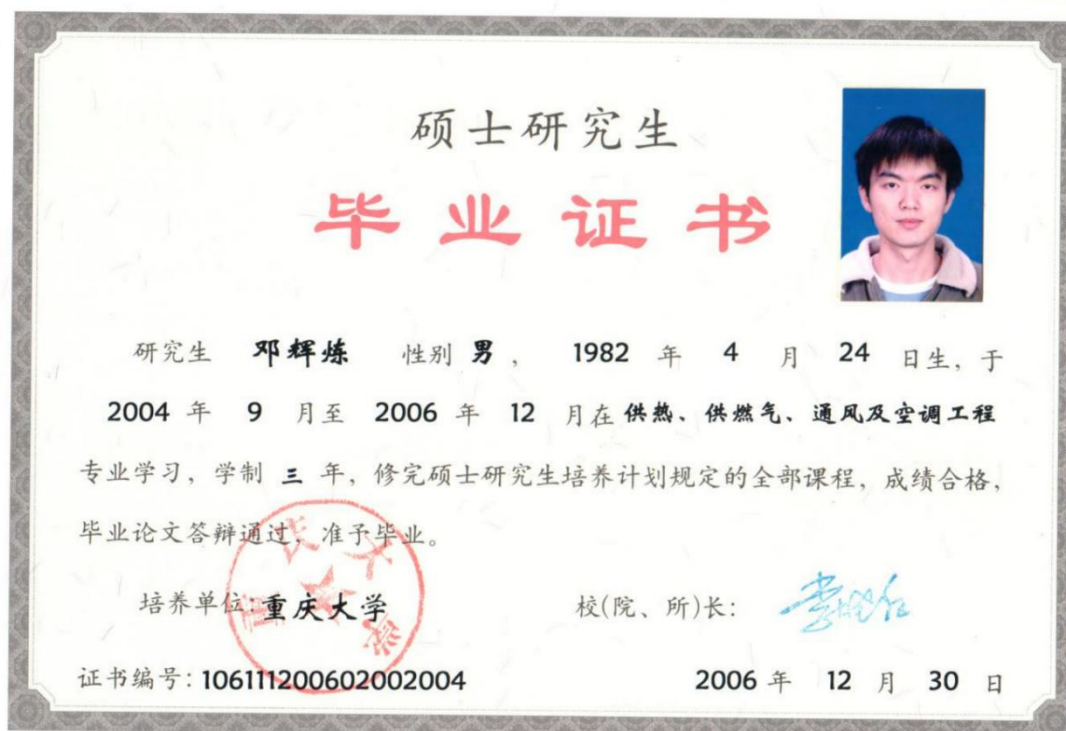 硕士研究生
毕业证书
研究生 邓辉炼 性别 男， 1982 年 4 月 24 日生，于
2004 年 9 月至 2006 年 12 月在 供热、供燃气、通风及空调工程
专业学习，学制 三 年，修完硕士研究生培养计划规定的全部课程，成绩合格，
毕业论文答辩通过，准予毕业。
重庆大学
培养单位：重庆大学 校(院、所)长：
证书编号：106111200602002004 2006 年 12 月 30 日